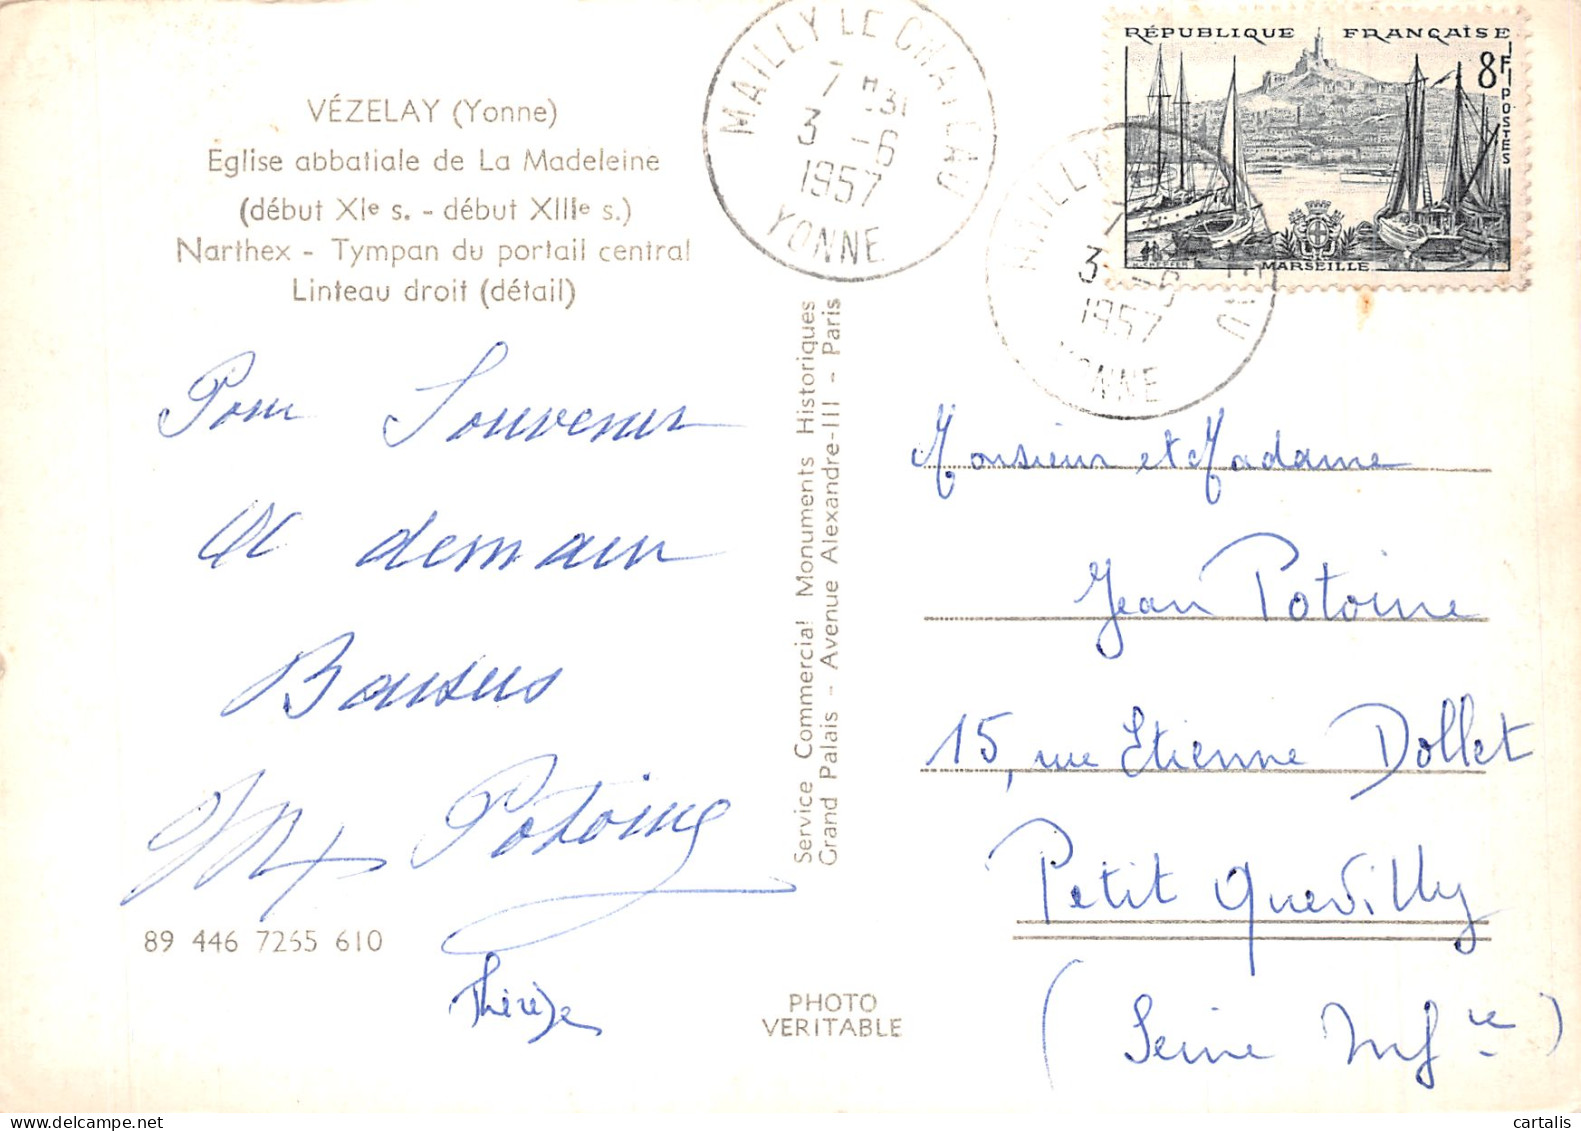 VÉZELAY (Yonne)
Eglise abbatiale de La Madeleine
(début XIe s. - début XIIIe s.)
Narthex - Tympan du portail central
Linteau droit (détail)
Pour Souvenir
A demain
Baisers
Potoine
Thérèse
89 446 7265 610
Service Commercial Monuments Historiques
Grand Palais - Avenue Alexandre-III - Paris
PHOTO
VERITABLE
MAILLY LE CHATEAU
7 H31
3 -6
1957
YONNE
RÉPUBLIQUE FRANÇAISE
8F
POSTES
MARSEILLE
MAILLY
7
3 -6
1957
YONNE
Monsieur et Madame
Jean Potoine
15, rue Etienne Dollet
Petit Quevilly
(Seine Infre)
cartalis